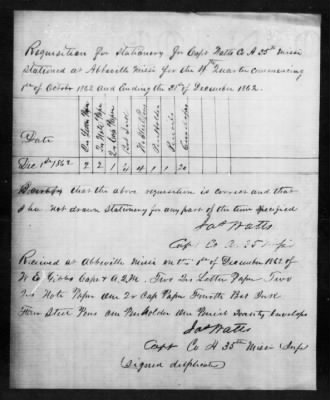 Requisition for Stationery for Capt Watts Co H 35th Missi
stationed at Abbeville Missi for the 4th Quarter commencing
1st of October 1862 and ending the 31st of December 1862.
Date
Qrs Letter Paper
Qrs Note Paper
Qrs Cap Paper
Bot Ink
No Steel Pens
Pen Holder
Pencils
Envelopes
Dec 1st 1862 2 2 1 4 1 1 20
I certify that the above requisition is correct and that
I have not drawn stationery for any part of the time specified
Jas Watts
Capt Co H 35
Received at Abbeville Missi on the 1st of December 1862 of
W E Gibbs Capt & A.Q.M. Two Qrs Letter Paper Two
Qrs Note Paper one Qr Cap Paper Bot Ink
Four Steel Pens one Penholder one Pencil Twenty Envelops
Jas Watts
Capt Co H 35th Missi Inf
(Signed duplicate)